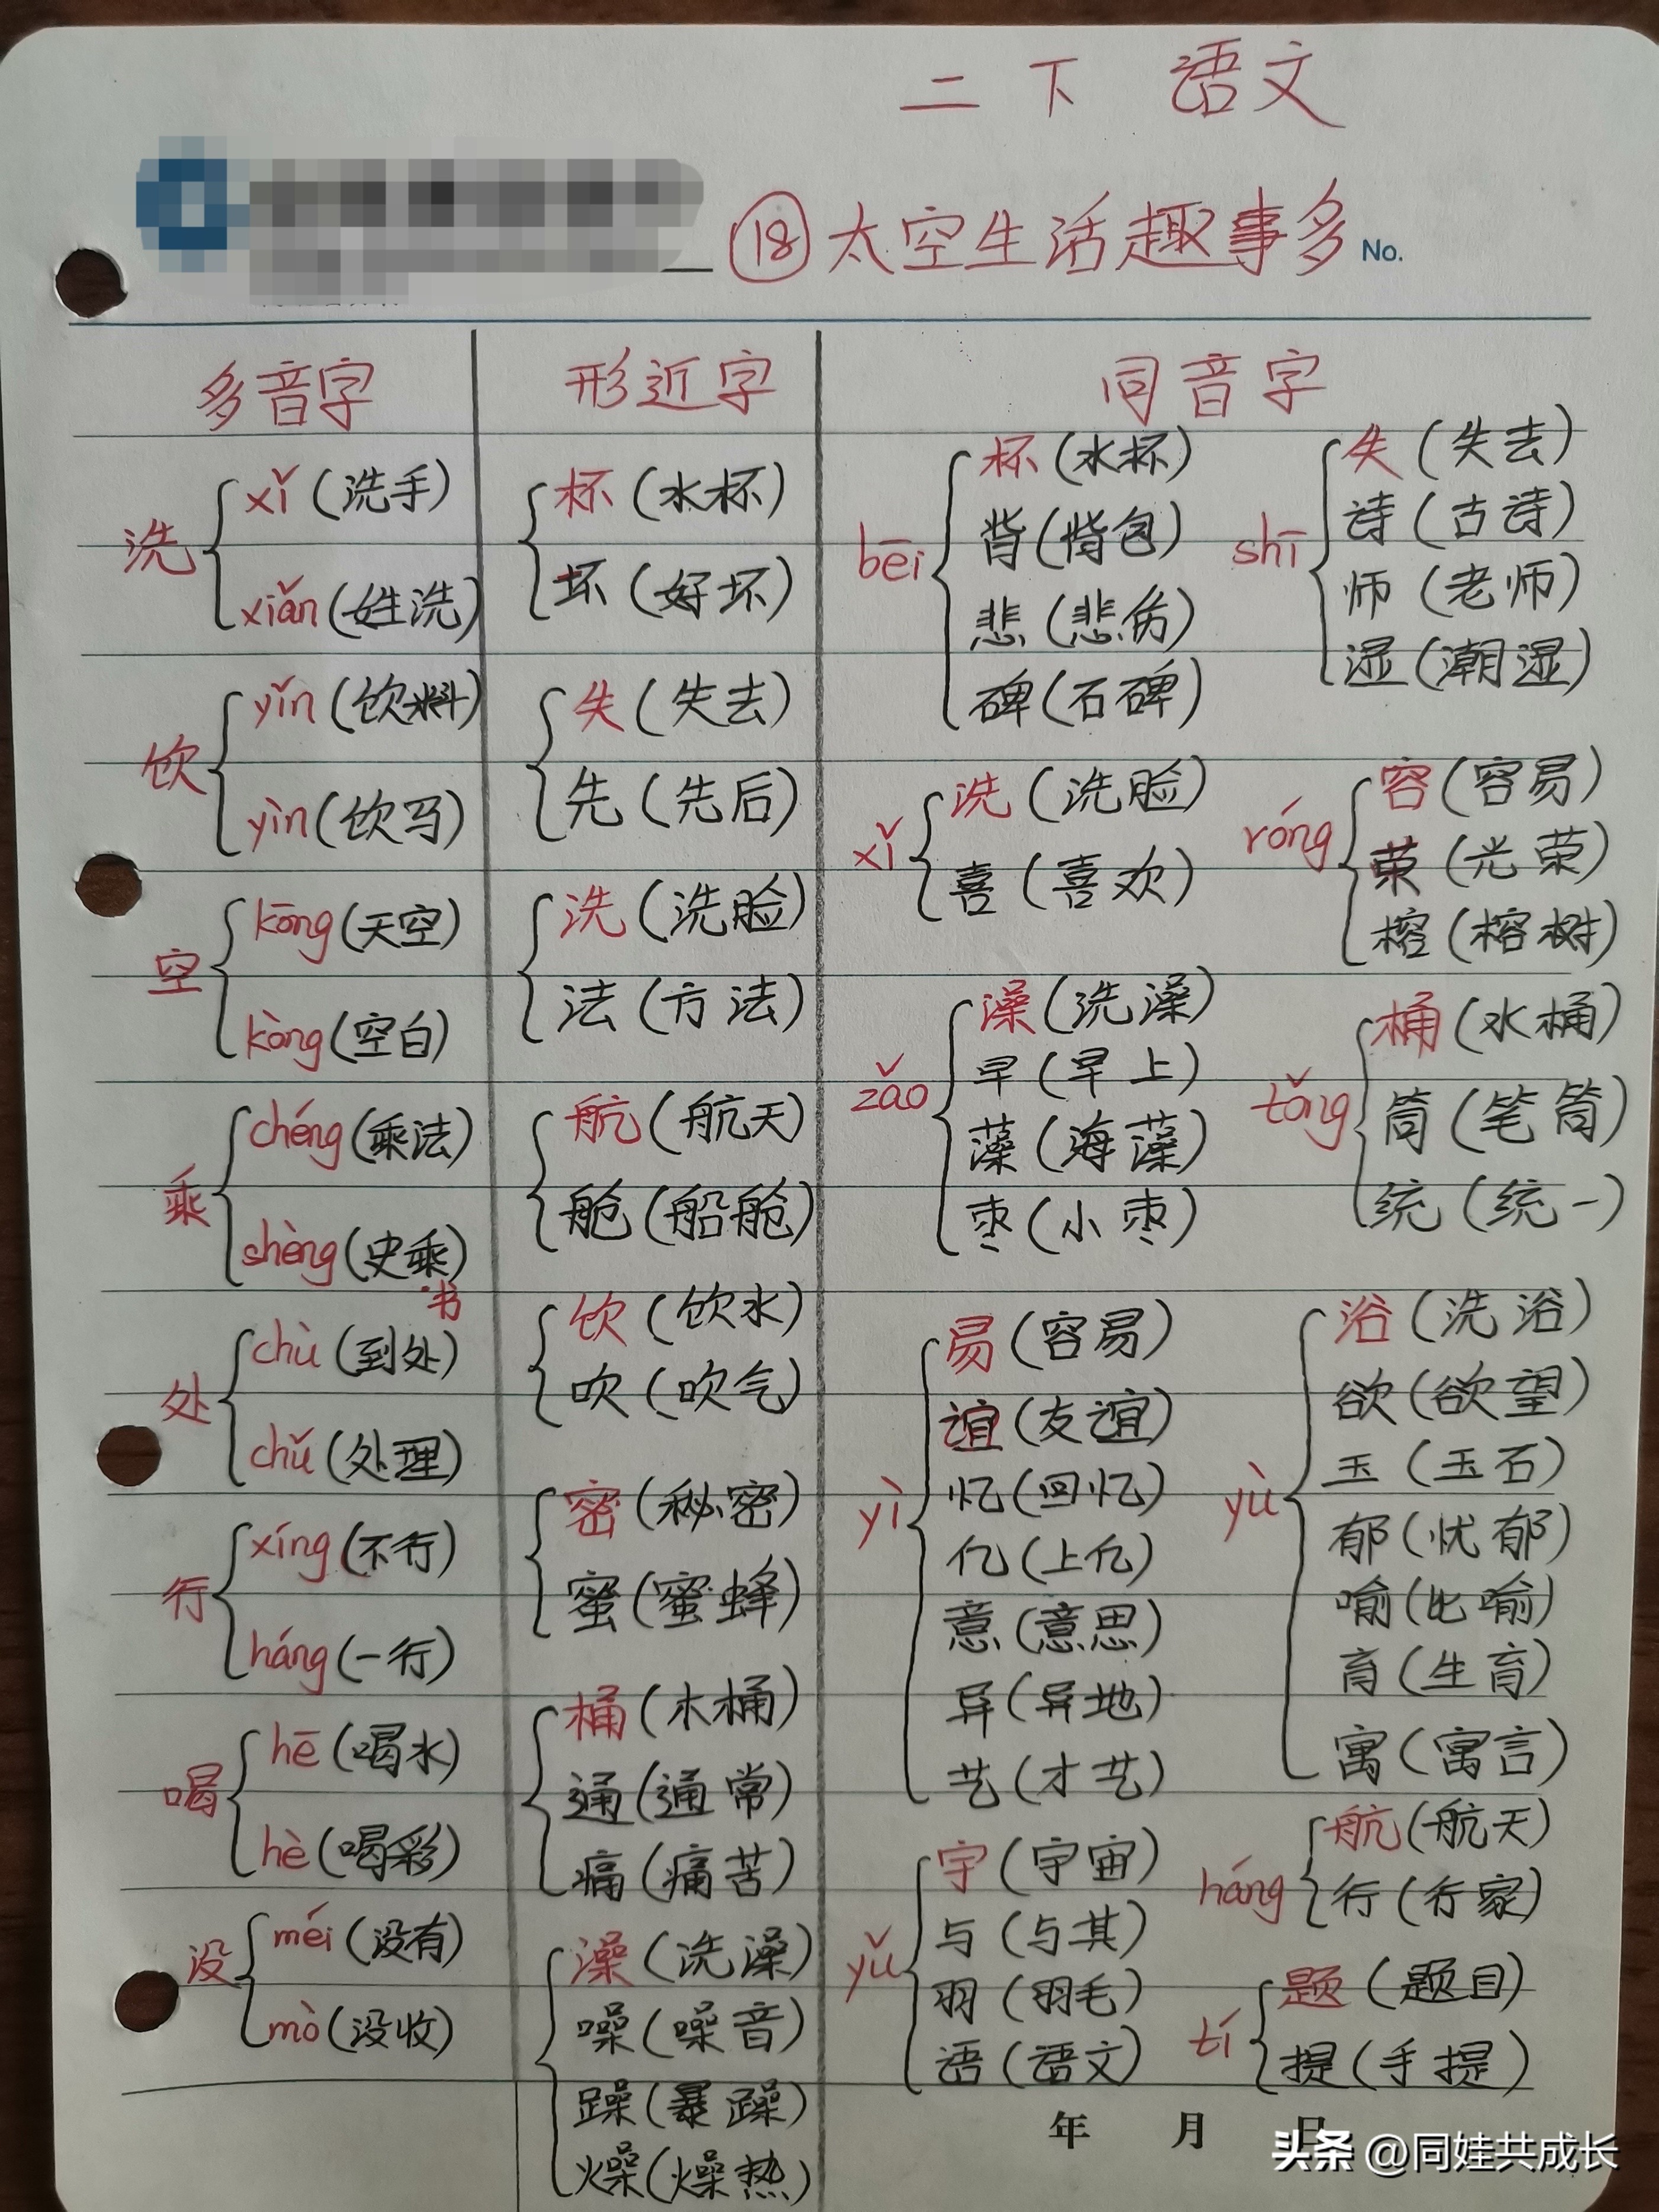 二下 语文
⑱太空生活趣事多 No.
多音字
洗
xǐ(洗手)
xiǎn(姓洗)
饮
yǐn(饮料)
yìn(饮马)
空
kōng(天空)
kòng(空白)
乘
chéng(乘法)
shèng(史乘)
书
处
chù(到处)
chǔ(处理)
行
xíng(不行)
háng(一行)
喝
hē(喝水)
hè(喝彩)
没
méi(没有)
mò(没收)
形近字
杯(水杯)
坏(好坏)
失(失去)
先(先后)
洗(洗脸)
法(方法)
航(航天)
舱(船舱)
饮(饮水)
吹(吹气)
密(秘密)
蜜(蜜蜂)
桶(木桶)
通(通常)
痛(痛苦)
澡(洗澡)
噪(噪音)
躁(暴躁)
燥(燥热)
同音字
bēi
杯(水杯)
背(背包)
悲(悲伤)
碑(石碑)
xǐ
洗(洗脸)
喜(喜欢)
zǎo
澡(洗澡)
早(早上)
藻(海藻)
枣(小枣)
yì
易(容易)
谊(友谊)
忆(回忆)
亿(上亿)
意(意思)
异(异地)
艺(才艺)
yǔ
宇(宇宙)
与(与其)
羽(羽毛)
语(语文)
shī
失(失去)
诗(古诗)
师(老师)
湿(潮湿)
róng
容(容易)
荣(光荣)
榕(榕树)
tǒng
桶(水桶)
筒(笔筒)
统(统一)
yù
浴(洗浴)
欲(欲望)
玉(玉石)
郁(忧郁)
喻(比喻)
育(生育)
寓(寓言)
háng
航(航天)
行(行家)
tí
题(题目)
提(手提)
年 月 日
头条 @同娃共成长